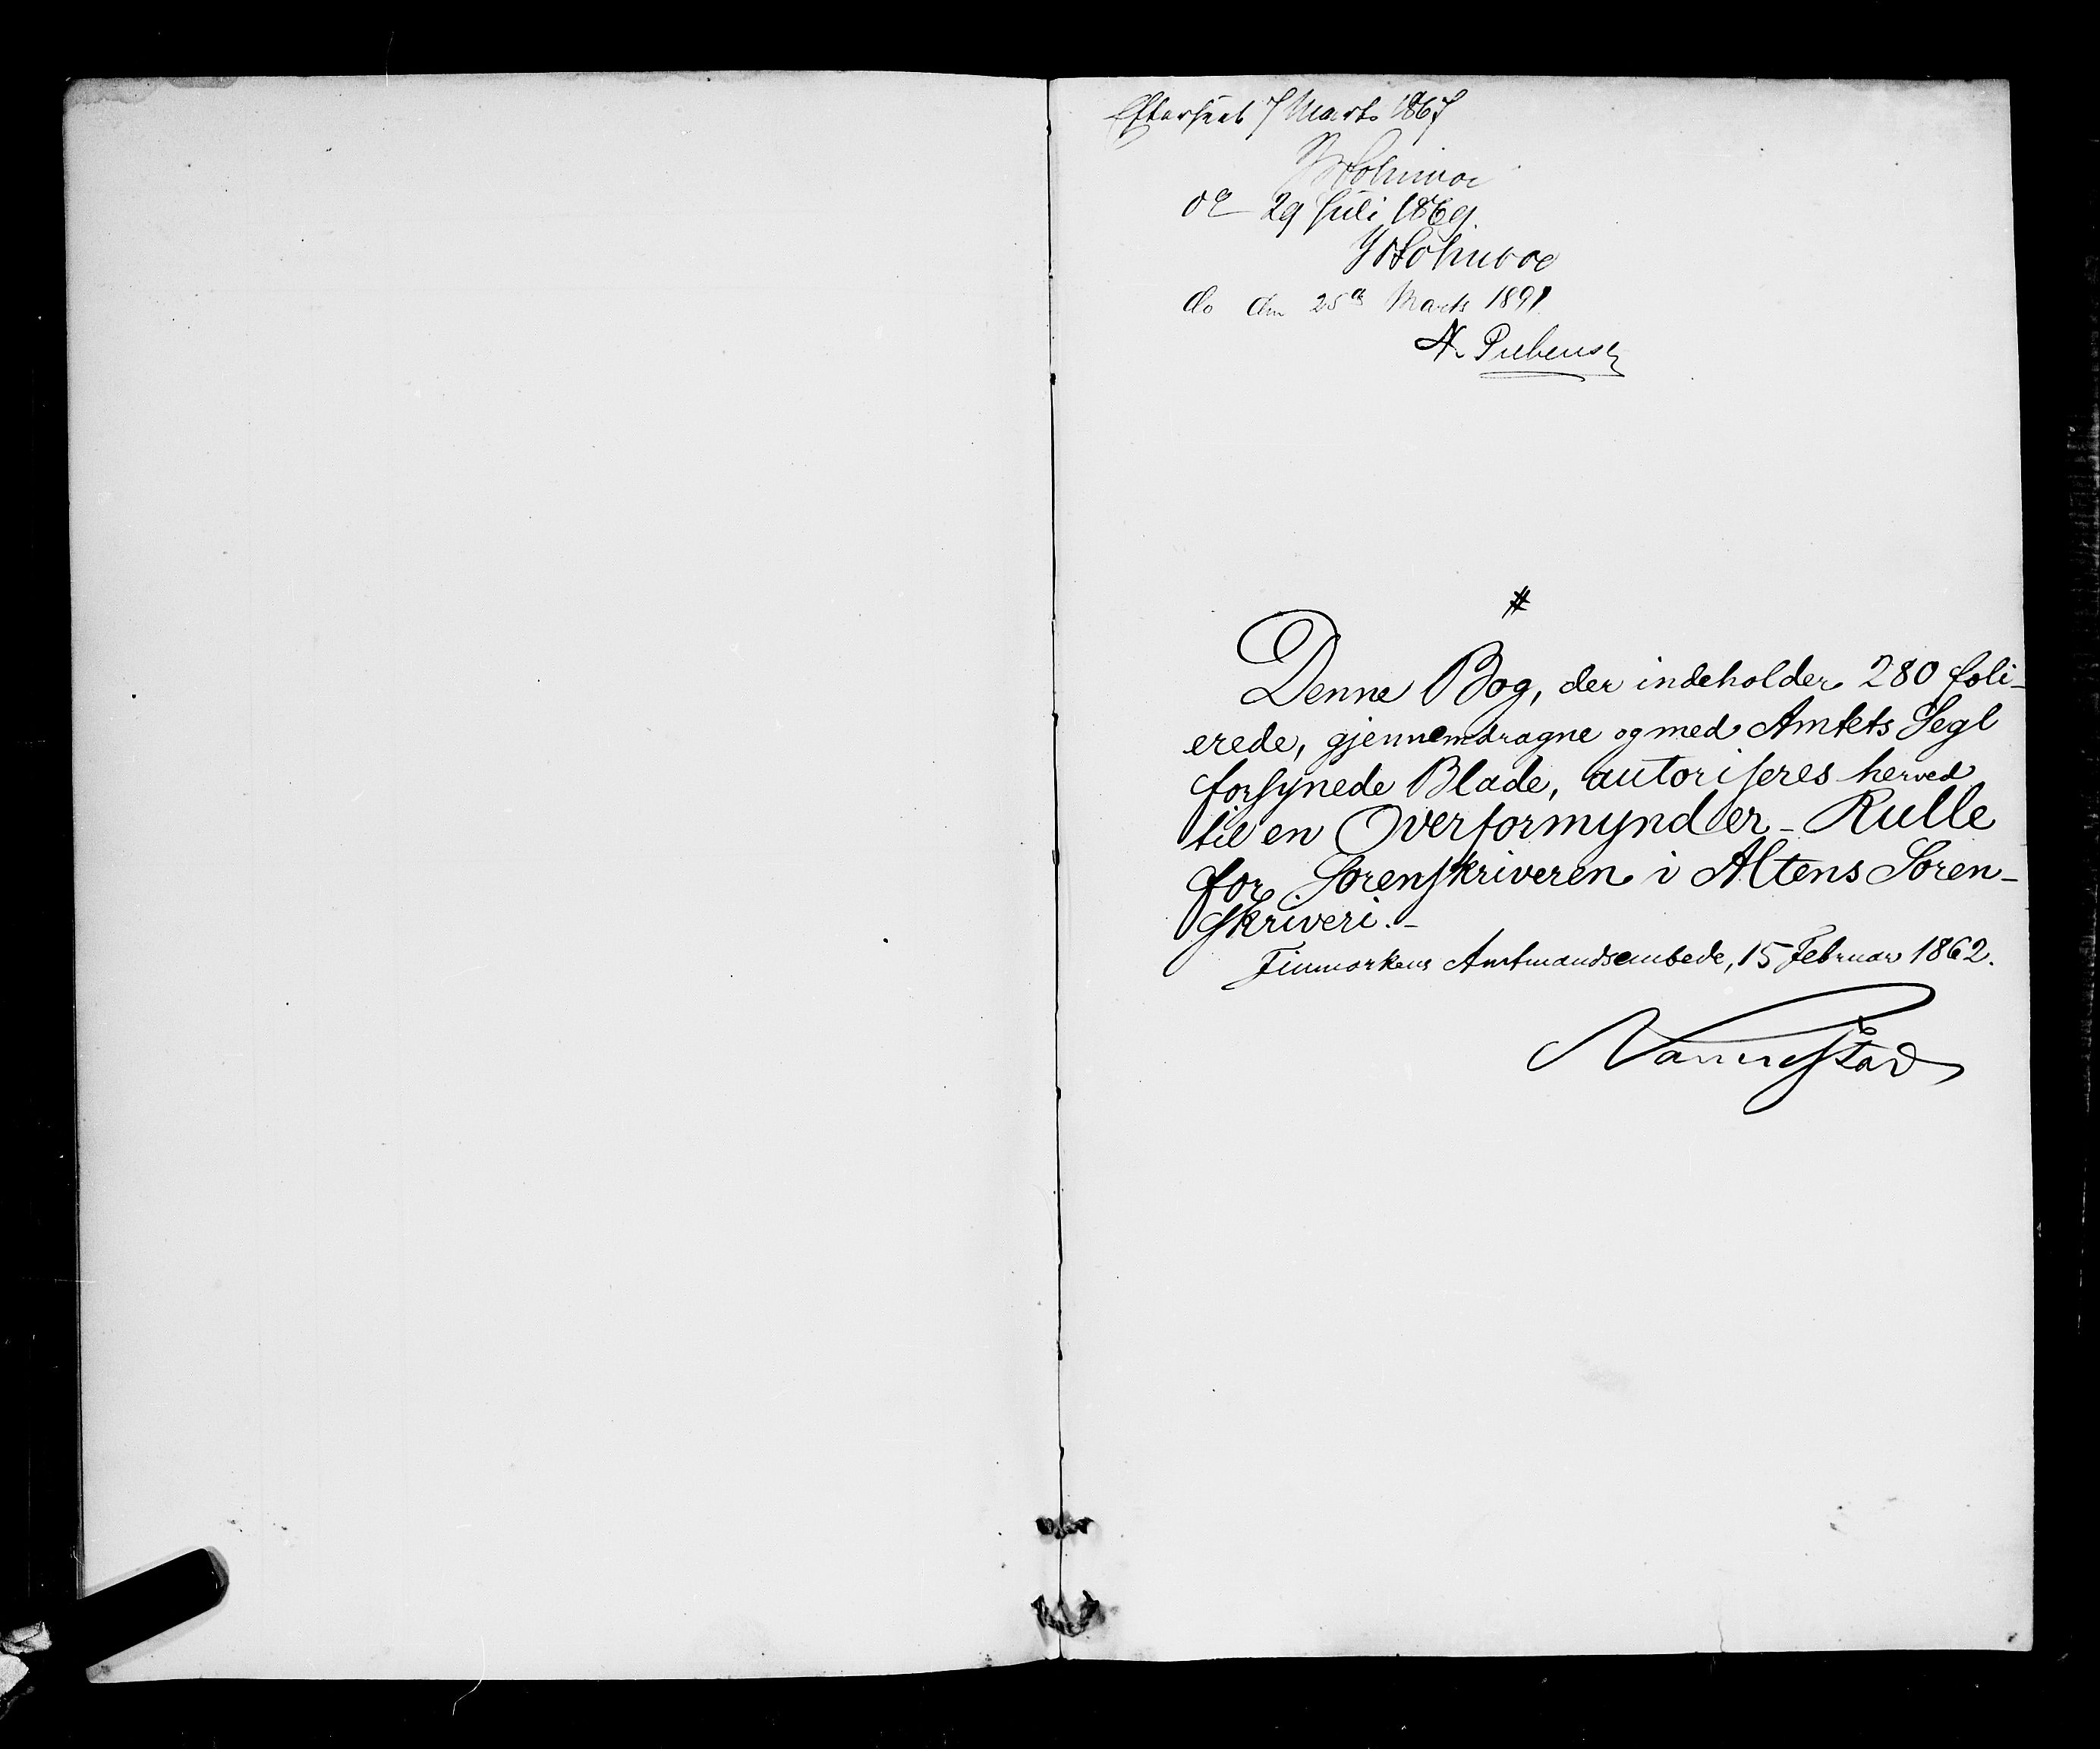 Efterseet 7 Marts 1867
JHolmboe
do 29 Juli 1869.
JHolmboe
do den 25de Marts 1891.
N. Prebensen
#
Denne Bog, der indeholder 280 foli-
erede, gjennemdragne og med Amtets Segl
forsynede Blade, autoriseres herved
til en Overformynder-Rulle
for Sorenskriveren i Altens Soren-
skriveri.-
Finmarkens Amtmandsembede, 15 Februar 1862.
Nannestad